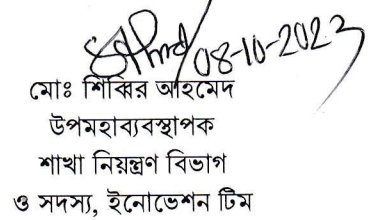 08-10-2023
মোঃ শিব্বির আহমেদ
উপমহাব্যবস্থাপক
শাখা নিয়ন্ত্রণ বিভাগ
ও সদস্য, ইনোভেশন টিম